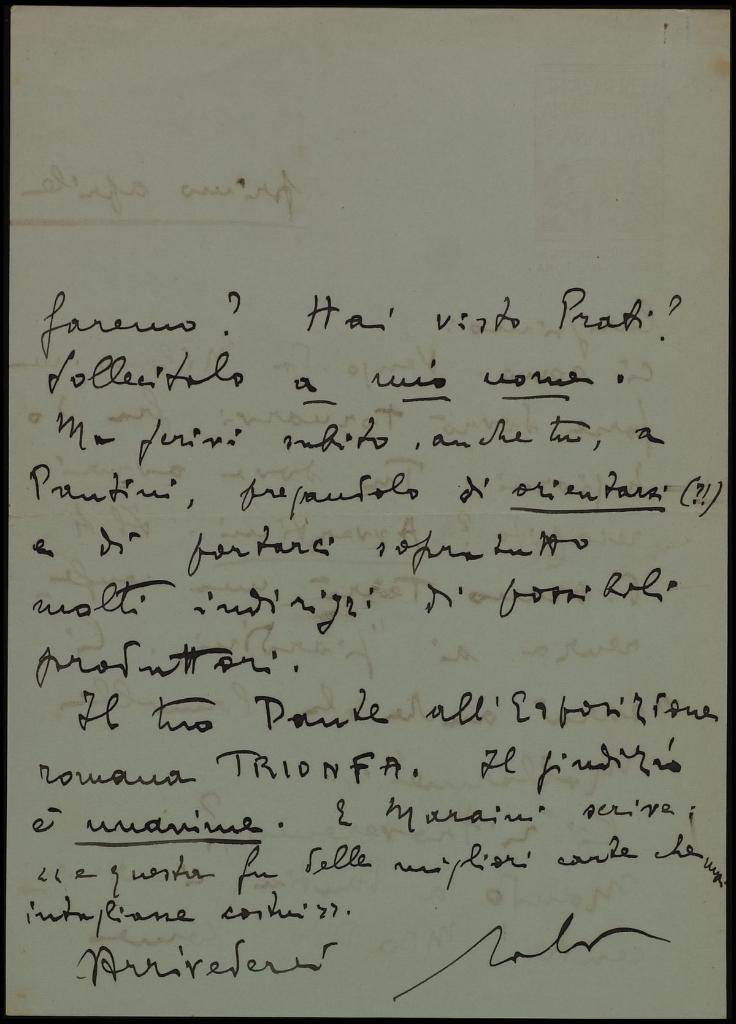 faremo? Hai visto Prati?
Sollecitalo a mio nome.
Ma scrivi subito, anche tu, a
Pantini, pregandolo di orientarsi (?!)
e di portarci sopratutto
molti indirizzi di possibili
produttori.
Il tuo Dante all'Esposizione
romana TRIONFA. Il giudizio
è unanime. E Maraini scrive:
«e questa fu delle migliori carte che mai
intagliasse costui».
Arrivederci
primo aprile